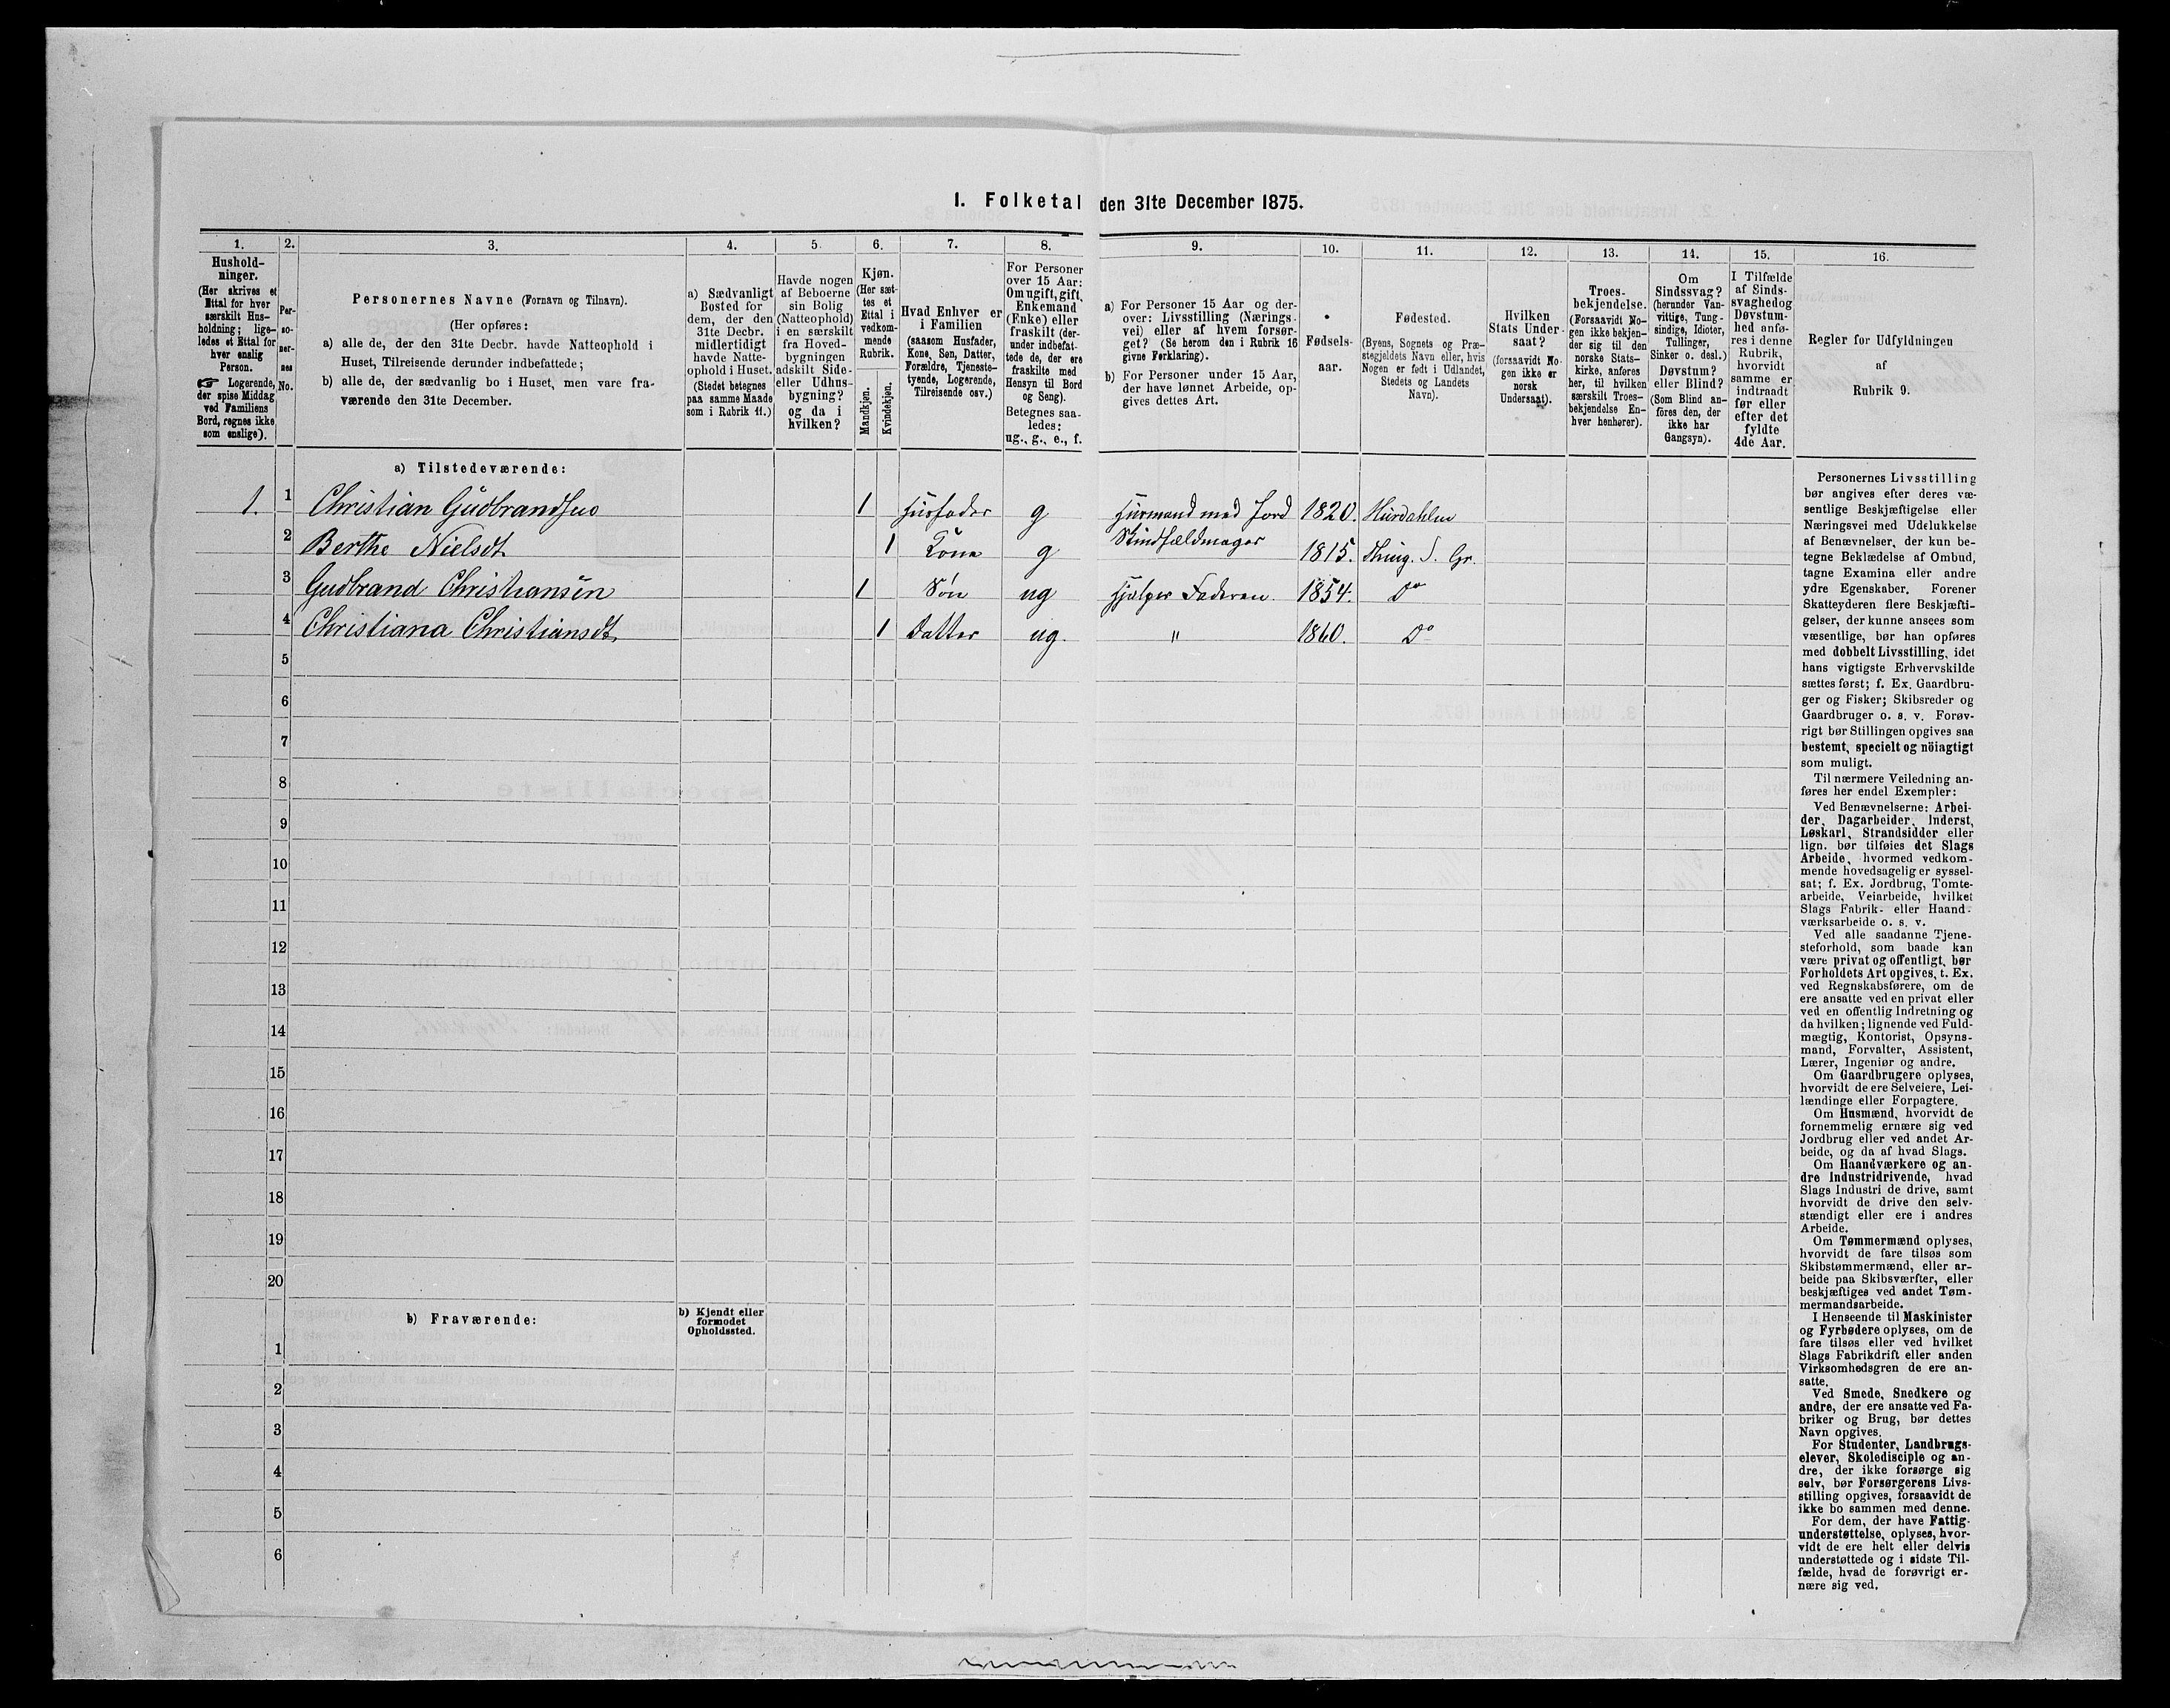 1. Folketal den 31te December 1875.
1.
2.
3.
4.
5.
6.
7.
8.
9.
10.
11.
12.
13.
14.
15.
16.
Hushold-
ninger.
(Her skrives et
Ettal for hver
særskilt Hus-
holdning; lige-
ledes et Ettal for
hver enslig
Person.
☞ Logerende,
der spise Middag
ved Familiens
Bord, regnes ikke
som enslige).
Per-
so-
ner-
nes
No.
Personernes Navne (Fornavn og Tilnavn).
(Her opføres:
a) alle de, der den 31te Decbr. havde Natteophold i
Huset, Tilreisende derunder indbefattede;
b) alle de, der sædvanlig bo i Huset, men vare fra-
værende den 31te December.
a) Sædvanligt
Bosted for
dem, der den
31te Decbr.
midlertidigt
havde Natte-
ophold i Huset.
(Stedet betegnes
paa samme Maade
som i Rubrik 11.)
Havde nogen
af Beboerne
sin Bolig
(Natteophold)
i en særskilt
fra Hoved-
bygningen
adskilt Side-
eller Udhus-
bygning?
og da i
hvilken?
Kjøn.
(Her sæt-
tes et
Ettal i
vedkom-
mende
Rubrik.
Mandkjøn.
Kvindekjøn.
Hvad Enhver er
i Familien
(saasom Husfader,
Kone, Søn, Datter,
Forældre, Tjeneste-
tyende, Logerende,
Tilreisende osv.)
For Personer
over 15 Aar:
Om ugift, gift,
Enkemand
(Enke) eller
fraskilt (der-
under indbefat-
tede de, der ere
fraskilte med
Hensyn til Bord
og Seng).
Betegnes saa-
ledes:
ug., g., e., f.
a) For Personer 15 Aar og der-
over: Livsstilling (Nærings-
vei) eller af hvem forsør-
get? (Se herom den i Rubrik 16
givne Forklaring).
b) For Personer under 15 Aar,
der have lønnet Arbeide, op-
gives dettes Art.
Fødsels-
aar.
Fødested.
(Byens, Sognets og Præ-
stegjeldets Navn eller, hvis
Nogen er født i Udlandet,
Stedets og Landets
Navn).
Hvilken
Stats Under-
saat?
(forsaavidt No-
gen ikke er
norsk
Undersaat).
Troes-
bekjendelse.
(Forsaavidt No-
gen ikke bekjen-
der sig til den
norske Stats-
kirke, anføres
her, til hvilken
særskilt Troes-
bekjendelse En-
hver henhører).
Om
Sindssvag?
(herunder Van-
vittige, Tung-
sindige, Idioter,
Tullinger,
Sinker o. desl.)
Døvstum?
eller Blind?
(Som Blind an-
føres den, der
ikke har
Gangsyn).
I Tilfælde
af Sinds-
svaghed og
Døvstum-
hed anfø-
res i denne
Rubrik,
hvorvidt
samme er
indtraadt
før eller
efter det
fyldte
4de Aar.
Regler for Udfyldningen
af
Rubrik 9.
a) Tilstedeværende:
1. 1 Christian Gudbrandsen 1 Husfader g Husmand med Jord 1820. Hurdahlen
Skindfældmager
2 Berthe Nielsdt. 1 Kone g 1815. Thing. S. Gr.
3 Gudbrand Christiansen 1 Søn ug Hjælper Faderen. 1854. Do
4 Christiana Christiansdt. 1 Datter ug. " 1860. Do
5
6
7
8
9
10
11
12
13
14
15
16
17
18
19
20
b) Fraværende:
b) Kjendt eller
formodet
Opholdssted.
1
2
3
4
5
6
Personernes Livsstilling
bør angives efter deres væ-
sentlige Beskjæftigelse eller
Næringsvei med Udelukkelse
af Benævnelser, der kun be-
tegne Beklædelse af Ombud,
tagne Examina eller andre
ydre Egenskaber. Forener
Skatteyderen flere Beskjæfti-
gelser, der kunne ansees som
væsentlige, bør han opføres
med dobbelt Livsstilling, idet
hans vigtigste Erhvervskilde
sættes først; f. Ex. Gaardbru-
ger og Fisker; Skibsreder og
Gaardbruger o. s. v. Forøv-
rigt bør Stillingen opgives saa
bestemt, specielt og nöiagtigt
som muligt.
Til nærmere Veiledning an-
føres her endel Exempler:
Ved Benævnelserne: Arbei-
der, Dagarbeider, Inderst,
Løskarl, Strandsidder eller
lign. bør tilføies det Slags
Arbeide, hvormed vedkom-
mende hovedsagelig er syssel-
sat; f. Ex. Jordbrug, Tomte-
arbeide, Veiarbeide, hvilket
Slags Fabrik- eller Haand-
værksarbeide o. s. v.
Ved alle saadanne Tjene-
steforhold, som baade kan
være privat og offentligt, bør
Forholdets Art opgives, t. Ex.
ved Regnskabsførere, om de
ere ansatte ved en privat eller
ved en offentlig Indretning og
da hvilken; lignende ved Fuld-
mægtig, Kontorist, Opsyns-
mand, Forvalter, Assistent,
Lærer, Ingeniør og andre.
Om Gaardbrugere oplyses,
hvorvidt de ere Selveiere, Lei-
lændinge eller Forpagtere.
Om Husmænd, hvorvidt de
fornemmelig ernære sig ved
Jordbrug eller ved andet Ar-
beide, og da af hvad Slags.
Om Haandværkere og an-
dre Industridrivende, hvad
Slags Industri de drive, samt
hvorvidt de drive den selv-
stændigt eller ere i andres
Arbeide.
Om Tømmermænd oplyses,
hvorvidt de fare tilsøs som
Skibstømmermænd, eller ar-
beide paa Skibsværfter, eller
beskjæftiges ved andet Tøm-
mermandsarbeide.
I Henseende til Maskinister
og Fyrbødere oplyses, om de
fare tilsøs eller ved hvilket
Slags Fabrikdrift eller anden
Virksomhedsgren de ere an-
satte.
Ved Smede, Snedkere og
andre, der ere ansatte ved Fa-
briker og Brug, bør dettes
Navn opgives.
For Studenter, Landbrugs-
elever, Skoledisciple og an-
dre, der ikke forsørge sig
selv, bør Forsørgerens Livs-
stilling opgives, forsaavidt de
ikke bo sammen med denne.
For dem, der have Fattig-
understøttelse, oplyses, hvor-
vidt de ere helt eller delvis
understøttede og i sidste Til-
fælde, hvad de forøvrigt er-
nære sig ved.